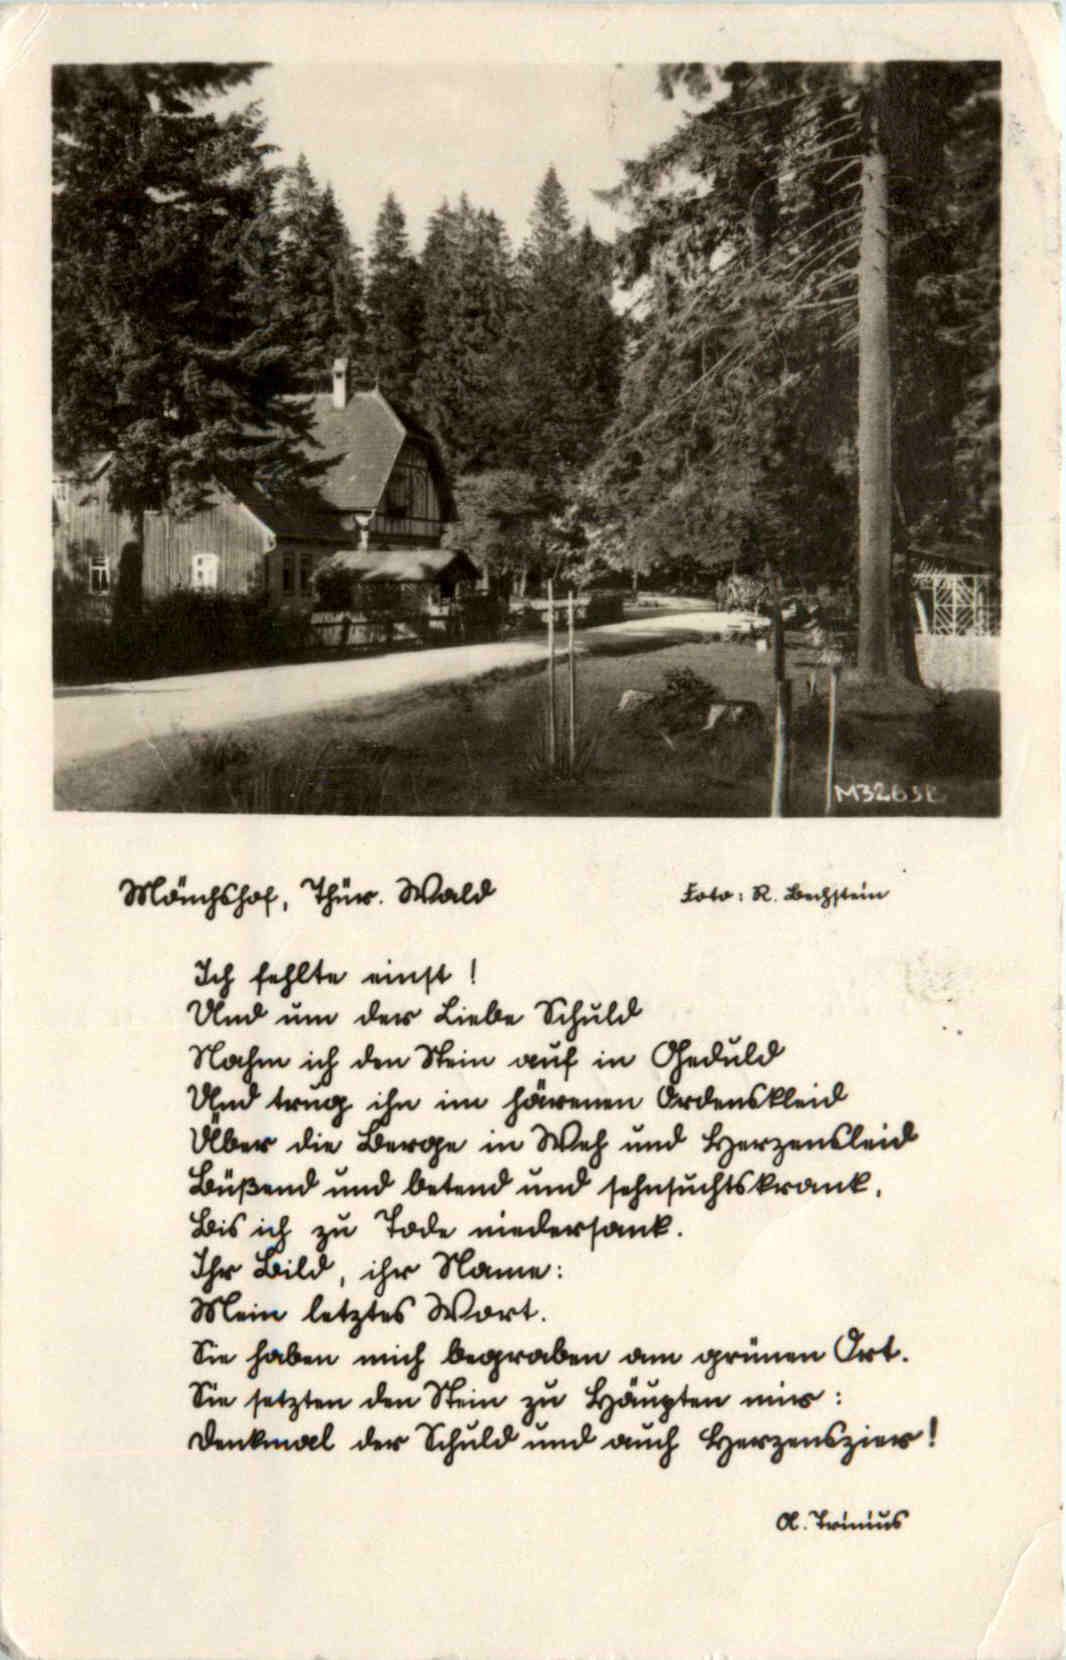 M 3263 L
Mönchshof, Thür. Wald
Foto: R. Bechstein
Ich fehlte einst!
Und um der Liebe Schuld
Nahm ich den Stein auf in Geduld
Und trug ihn im härenen Ordenskleid
Über die Berge in Weh und Herzensleid
Büßend und betend und sehnsuchtskrank,
Bis ich zu Tode niedersank.
Ihr Bild, ihr Name:
Mein letztes Wort.
Sie haben mich begraben am grünen Ort.
Sie setzten den Stein zu Häupten mir:
Denkmal der Schuld und auch Herzenszier!
A. Trinius